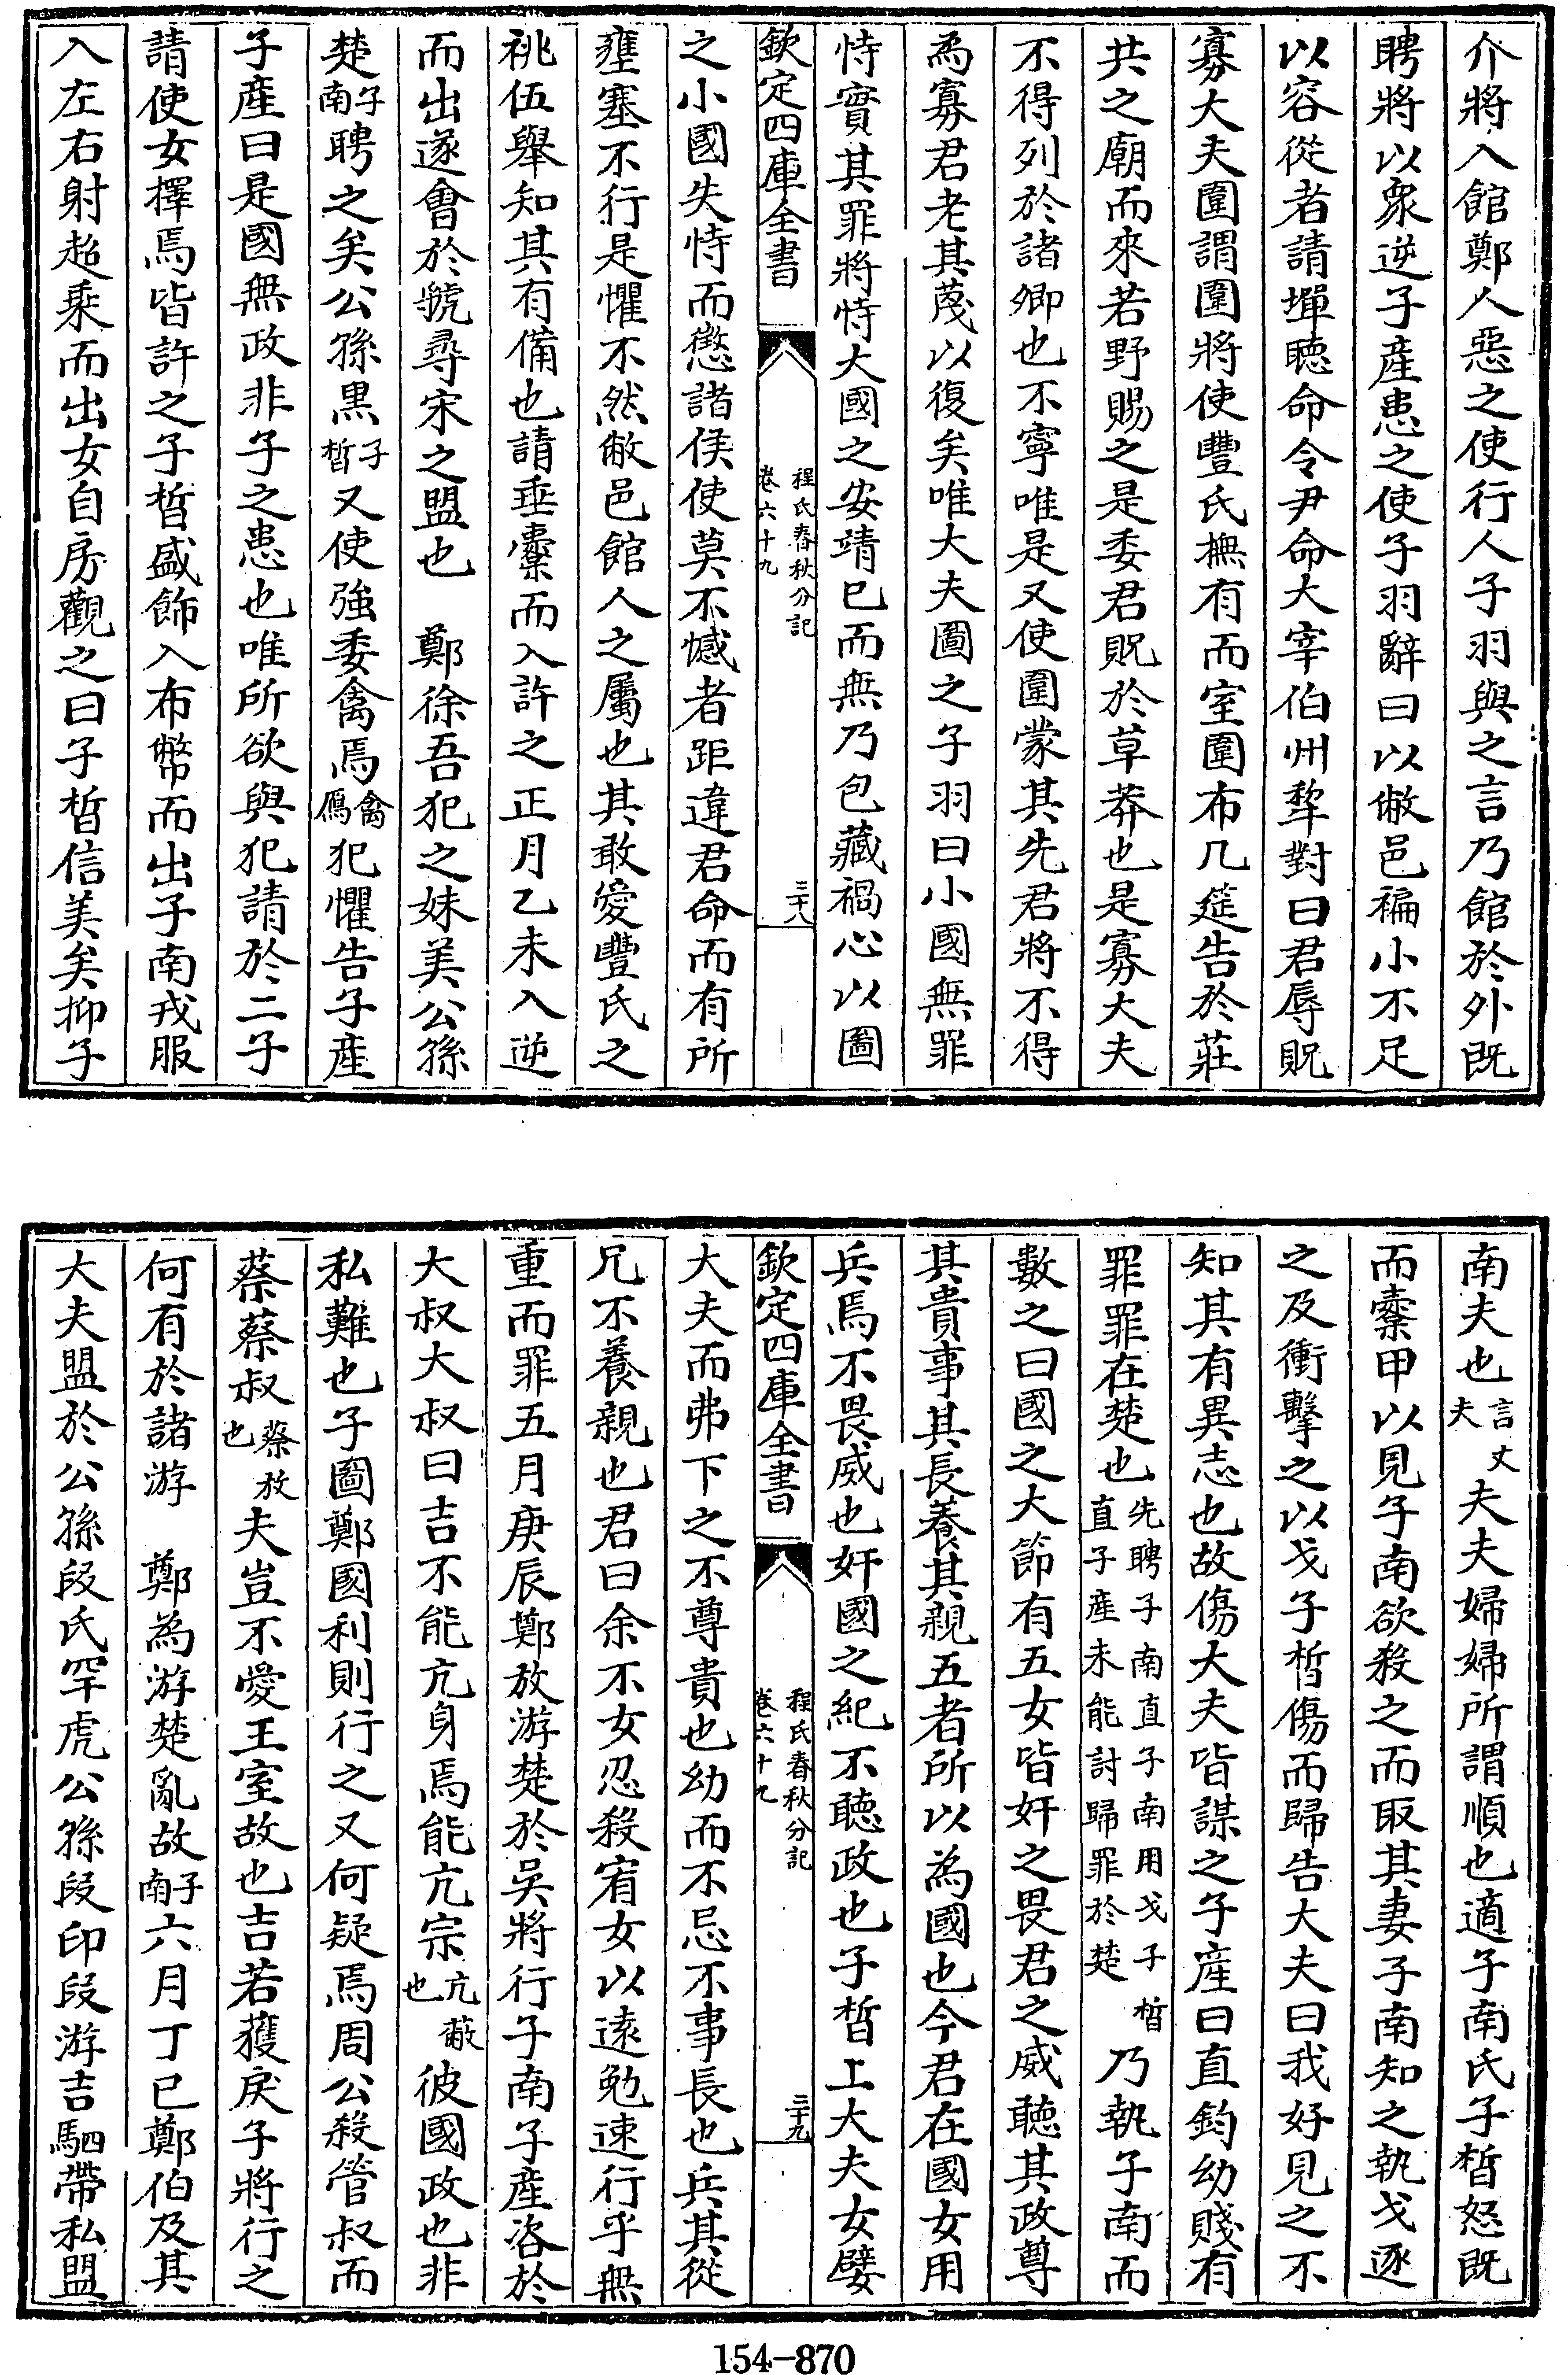 介將入館鄭人惡之使行人子羽與之言乃館於外既
聘將以衆逆子産患之使子羽辭曰以敝邑褊小不足
以容從者請墠聽命令尹命大宰伯州犂對曰君辱貺
寡大夫圍謂圍將使豐氏撫有而室圍布几筵告於莊
共之廟而來若野賜之是委君貺於草莽也是寡大夫
不得列於諸卿也不寧唯是又使圍蒙其先君將不得
為寡君老其蔑以復矣唯大夫圖之子羽曰小國無罪
恃實其罪將恃大國之安靖已而無乃包藏禍心以圖
欽定四庫全書
程氏春秋分記
卷六十九
三十八
之小國失恃而懲諸侯使莫不憾者距違君命而有所
壅塞不行是懼不然敝邑館人之屬也其敢愛豐氏之
祧伍舉知其有備也請垂櫜而入許之正月乙未入逆
而出遂會於虢尋宋之盟也　鄭徐吾犯之妹美公孫
楚子南聘之矣公孫黑子晳又使強委禽焉禽鴈犯懼告子産
子産曰是國無政非子之患也唯所欲與犯請於二子
請使女擇焉皆許之子晳盛飾入布幣而出子南戎服
入左右射超乘而出女自房觀之曰子晳信美矣抑子
南夫也言丈夫夫夫婦婦所謂順也適子南氏子晳怒既
而櫜甲以見子南欲殺之而取其妻子南知之執戈逐
之及衝擊之以戈子晳傷而歸告大夫曰我好見之不
知其有異志也故傷大夫皆謀之子産曰直鈞幼賤有
罪罪在楚也先聘子南直子南用戈子晳直子産未能討歸罪於楚乃執子南而
數之曰國之大節有五女皆奸之畏君之威聽其政尊
其貴事其長養其親五者所以為國也今君在國女用
兵焉不畏威也奸國之紀不聽政也子晳上大夫女嬖
欽定四庫全書
程氏春秋分記
卷六十九
三十九
大夫而弗下之不尊貴也幼而不忌不事長也兵其從
兄不養親也君曰余不女忍殺宥女以遠勉速行乎無
重而罪五月庚辰鄭放游楚於吳將行子南子産咨於
大叔大叔曰吉不能亢身焉能亢宗亢蔽也彼國政也非
私難也子圖鄭國利則行之又何疑焉周公殺管叔而
蔡蔡叔蔡放也夫豈不愛王室故也吉若獲戾子將行之
何有於諸游　鄭為游楚亂故子南六月丁巳鄭伯及其
大夫盟於公孫段氏罕虎公孫段印段游吉駟帶私盟
154-870